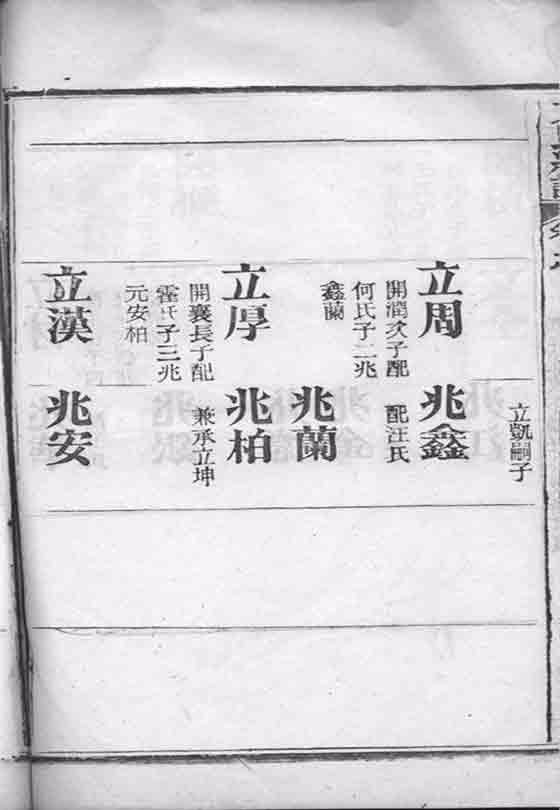 立凱嗣子
立周
開潤次子配
何氏子二兆
鑫蘭
兆鑫
配汪氏
兆蘭
立厚
開襄長子配
霍氏子三兆
元安柏
兆柏
兼承立坤
立漢
兆安